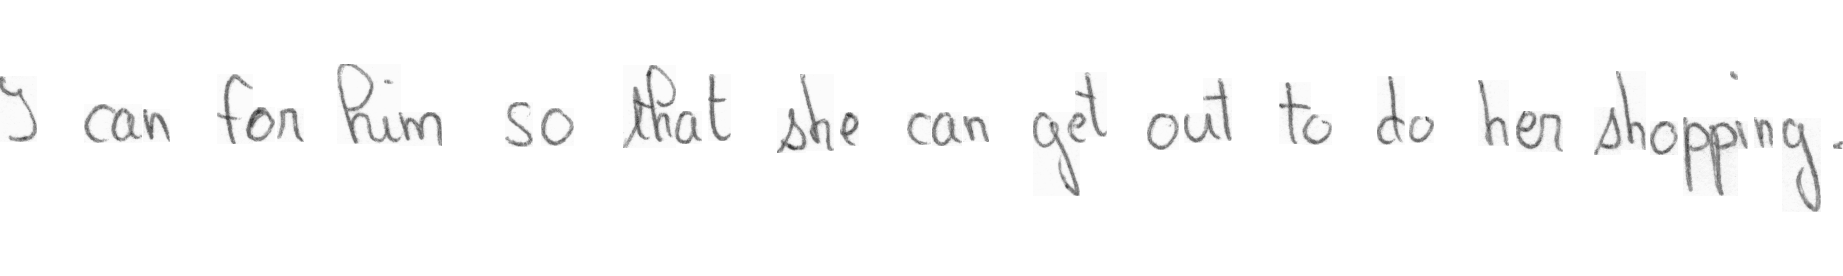 I can for him so that she can get out to do her shopping.